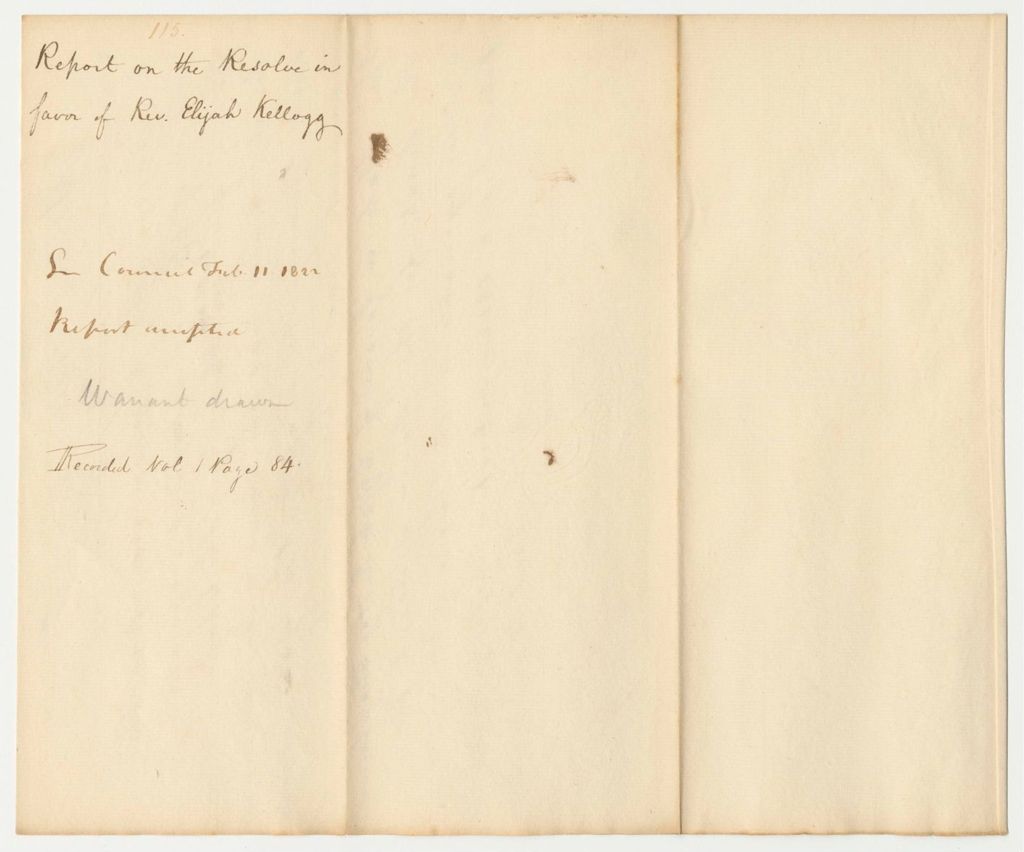 115.
Report on the Resolve in
favor of Rev. Elijah Kellogg
In Council Feb. 11 1822
Report accepted
Warrant drawn
Recorded Vol 1 Page 84.